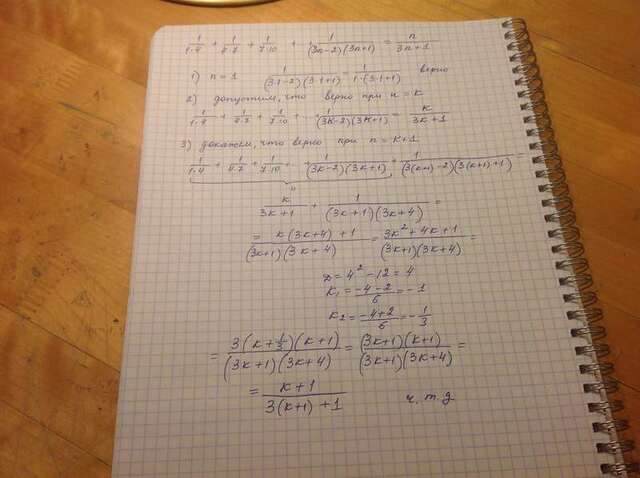 1/(1·4) + 1/(4·7) + 1/(7·10) + ... + 1/((3n-2)(3n+1)) = n/(3n+1)
1) n=1 1/((3·1-2)(3·1+1)) = 1/(1·(3·1+1)) верно
2) допустим, что верно при n=k
1/(1·4) + 1/(4·7) + 1/(7·10) + ... 1/((3k-2)(3k+1)) = k/(3k+1)
3) докажем, что верно при n=k+1
1/(1·4) + 1/(4·7) + 1/(7·10) + ... 1/((3k-2)(3k+1)) + 1/((3(k+1)-2)(3(k+1)+1)) =
"
k/(3k+1) + 1/((3k+1)(3k+4)) =
= (k(3k+4)+1)/((3k+1)(3k+4)) = (3k²+4k+1)/((3k+1)(3k+4)) =
D=4²-12=4
k₁=(-4-2)/6=-1
k₂=(-4+2)/6=-1/3
= (3(k+1/3)(k+1))/((3k+1)(3k+4)) = ((3k+1)(k+1))/((3k+1)(3k+4)) =
= (k+1)/(3(k+1)+1) ч.т.д